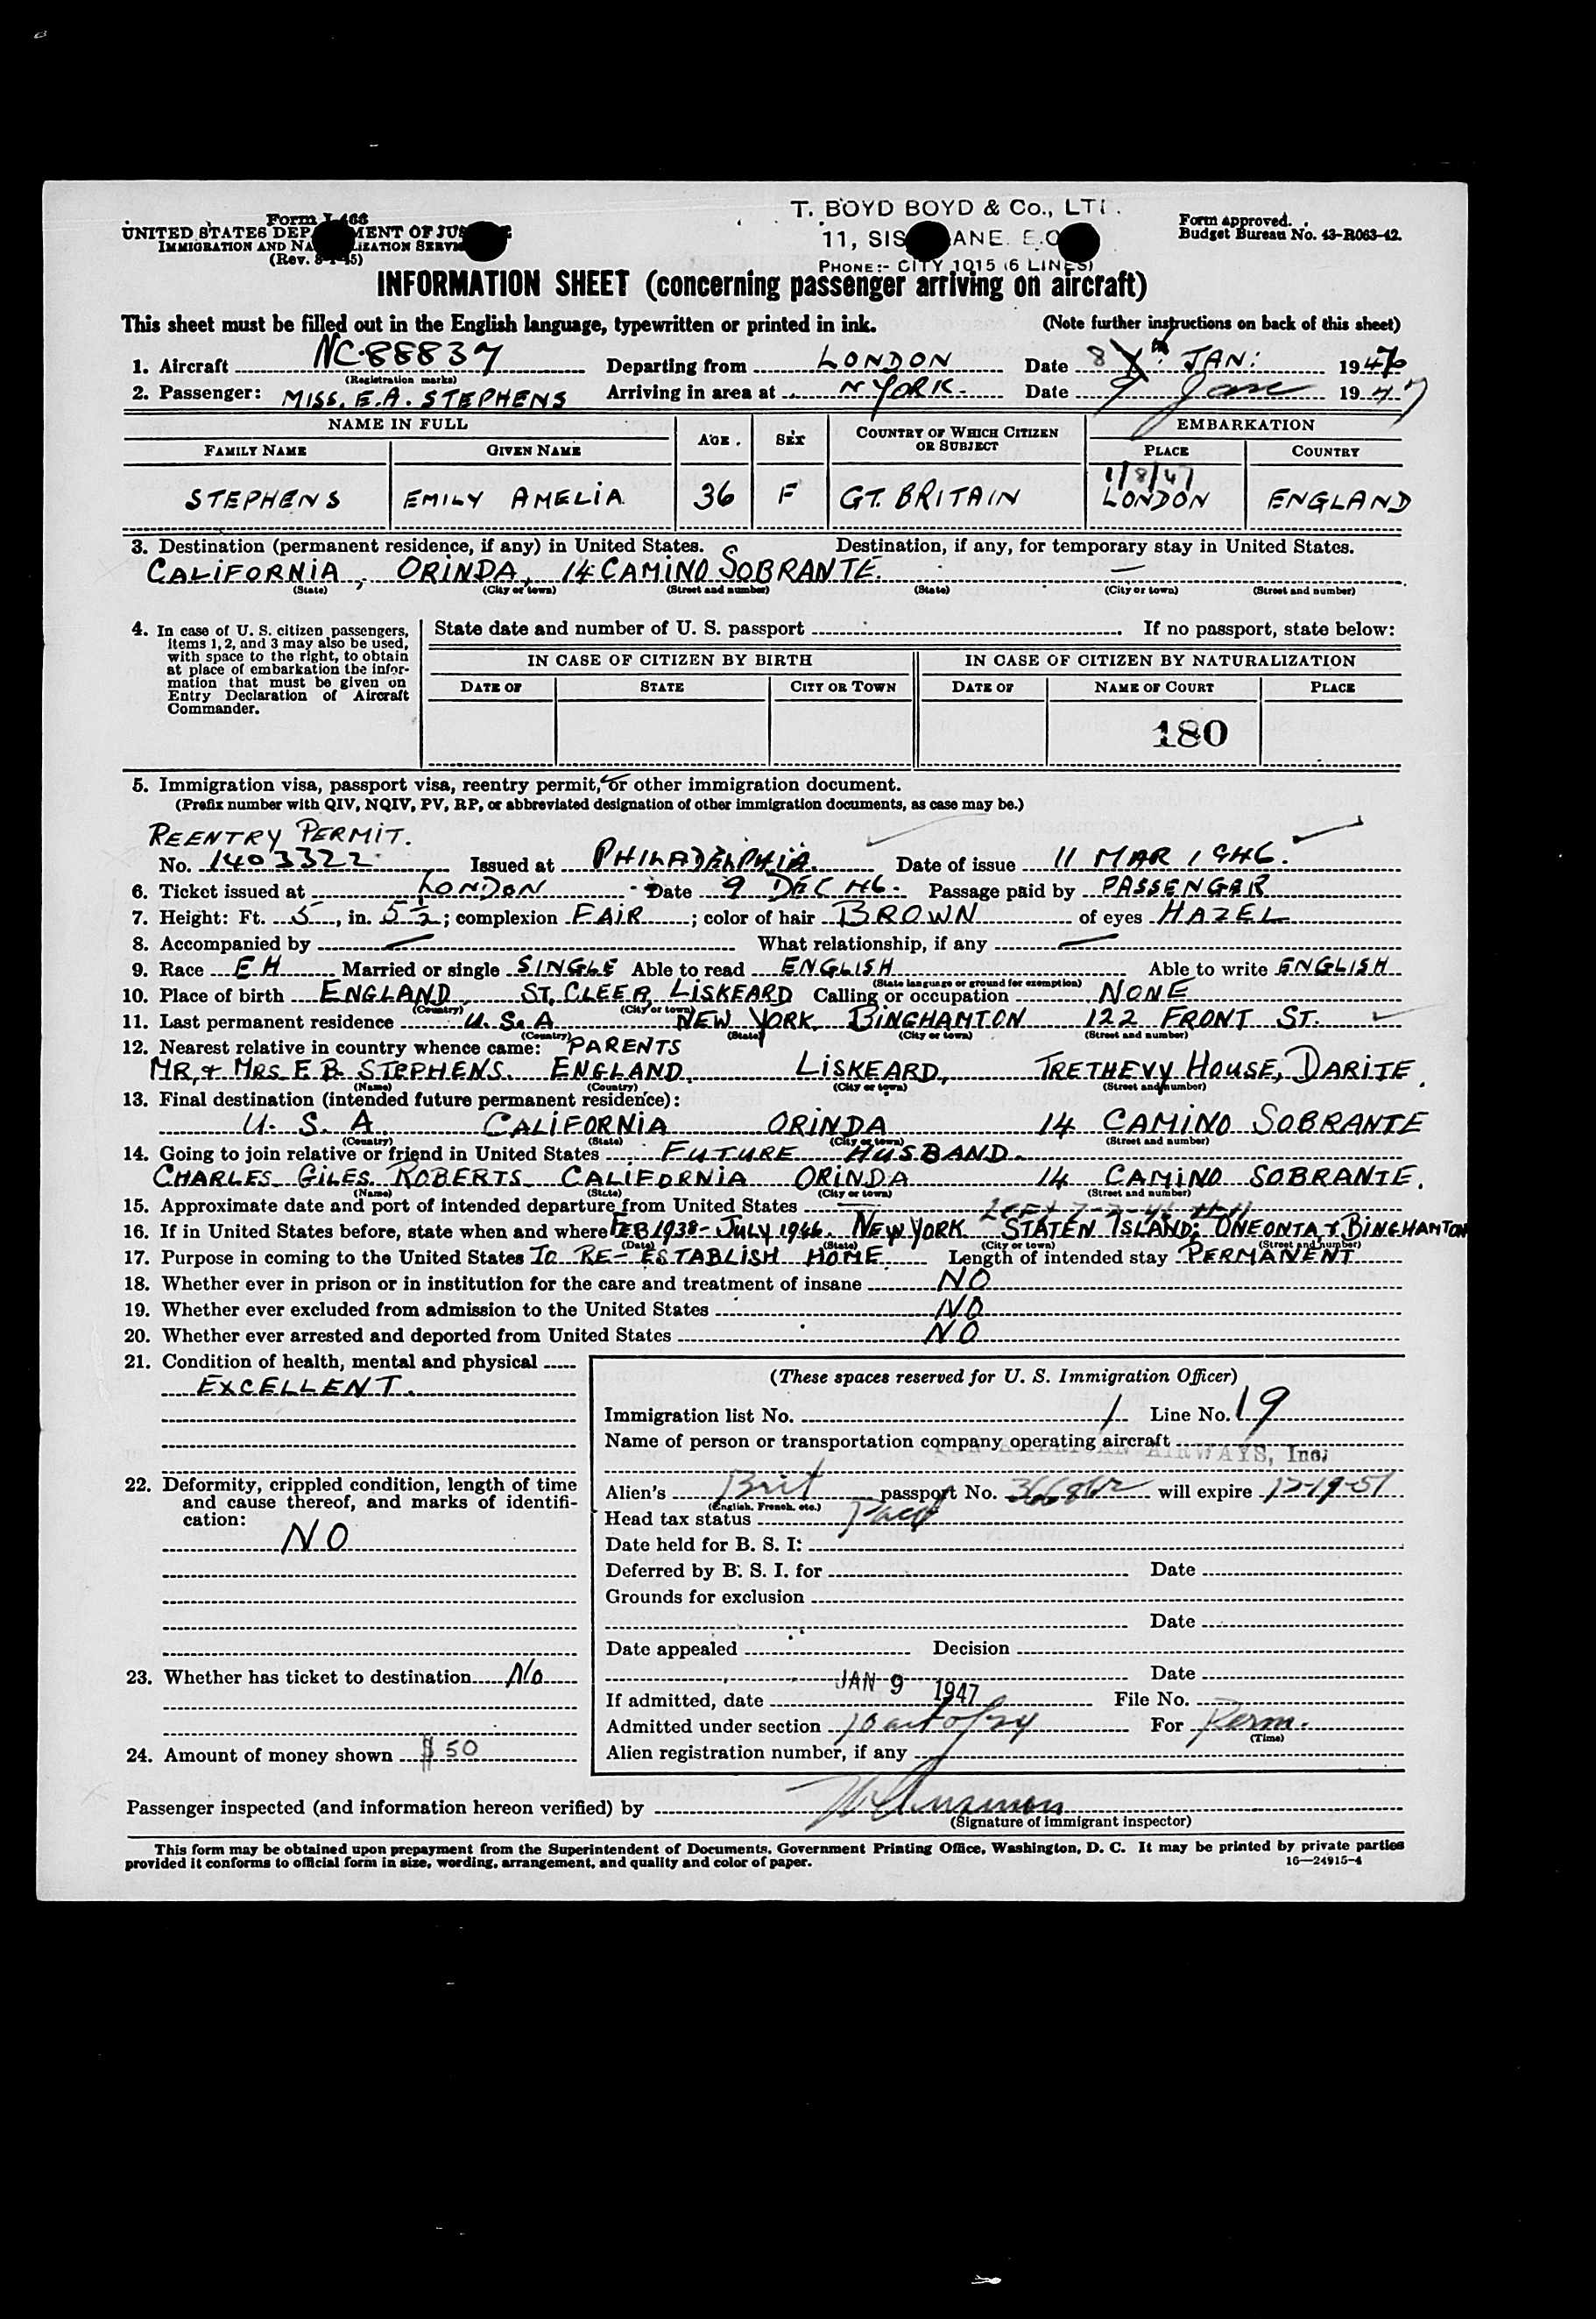 Form I-466
UNITED STATES DEP MENT OF JUS
IMMIGRATION AND NA LIZATION SERVI
(Rev. 8-1-45)
T. BOYD BOYD & Co., LT
11, SIS ANE. E.C
PHONE:- CITY 1015 (6 LINES)
Form approved.
Budget Bureau No. 43-R063-42.
INFORMATION SHEET (concerning passenger arriving on aircraft)
This sheet must be filled out in the English language, typewritten or printed in ink. (Note further instructions on back of this sheet)
1. Aircraft NC-88837 Departing from LONDON Date 8 JAN: 1947
(Registration marks)
2. Passenger: MISS. E.A. STEPHENS Arriving in area at N YORK. Date 9 Jan 1947
NAME IN FULL AGE. SEX COUNTRY OF WHICH CITIZEN OR SUBJECT EMBARKATION
FAMILY NAME GIVEN NAME PLACE COUNTRY
1/8/47
STEPHENS EMILY AMELIA 36 F GT. BRITAIN LONDON ENGLAND
3. Destination (permanent residence, if any) in United States. Destination, if any, for temporary stay in United States.
CALIFORNIA, ORINDA, 14 CAMINO SOBRANTE. —
(State) (City or town) (Street and number) (State) (City or town) (Street and number)
4. In case of U. S. citizen passengers, items 1, 2, and 3 may also be used, with space to the right, to obtain at place of embarkation the information that must be given on Entry Declaration of Aircraft Commander.
State date and number of U. S. passport If no passport, state below:
IN CASE OF CITIZEN BY BIRTH IN CASE OF CITIZEN BY NATURALIZATION
DATE OF STATE CITY OR TOWN DATE OF NAME OF COURT PLACE
180
5. Immigration visa, passport visa, reentry permit, or other immigration document.
(Prefix number with QIV, NQIV, PV, RP, or abbreviated designation of other immigration documents, as case may be.)
REENTRY PERMIT.
No. 1403322 Issued at PHILADELPHIA. Date of issue 11 MAR 1946.
6. Ticket issued at LONDON Date 9 DEC 46. Passage paid by PASSENGER
7. Height: Ft. 5, in. 5½; complexion FAIR; color of hair BROWN of eyes HAZEL
8. Accompanied by — What relationship, if any —
9. Race EH Married or single SINGLE Able to read ENGLISH Able to write ENGLISH
(State language or ground for exemption)
10. Place of birth ENGLAND, ST. CLEER, LISKEARD Calling or occupation NONE
(Country) (City or town)
11. Last permanent residence U.S.A NEW YORK BINGHAMTON 122 FRONT ST.
(Country) (State) (City or town) (Street and number)
12. Nearest relative in country whence came: PARENTS
MR. & MRS E.B. STEPHENS. ENGLAND, LISKEARD, TRETHEVY HOUSE, DARITE.
(Name) (Country) (City or town) (Street and number)
13. Final destination (intended future permanent residence):
U. S. A. CALIFORNIA ORINDA 14 CAMINO SOBRANTE
(Country) (State) (City or town) (Street and number)
14. Going to join relative or friend in United States FUTURE HUSBAND.
CHARLES GILES ROBERTS CALIFORNIA ORINDA 14 CAMINO SOBRANTE.
(Name) (State) (City or town) (Street and number)
15. Approximate date and port of intended departure from United States —
LEFT 7-2-46
16. If in United States before, state when and where FEB 1938 - JULY 1946. NEW YORK STATEN ISLAND; ONEONTA & BINGHAMTON
(Date) (State) (City or town) (Street and number)
17. Purpose in coming to the United States TO RE-ESTABLISH HOME. Length of intended stay PERMANENT
18. Whether ever in prison or in institution for the care and treatment of insane NO
19. Whether ever excluded from admission to the United States NO
20. Whether ever arrested and deported from United States NO
21. Condition of health, mental and physical
EXCELLENT.
22. Deformity, crippled condition, length of time and cause thereof, and marks of identification:
NO
23. Whether has ticket to destination No
24. Amount of money shown $50
(These spaces reserved for U. S. Immigration Officer)
Immigration list No. 1 Line No. 19
Name of person or transportation company operating aircraft
AMERICAN AIRWAYS, Inc.
Alien's Brit passport No. 366862 will expire 12-19-51
(English, French, etc.)
Head tax status Paid
Date held for B. S. I:
Deferred by B. S. I. for Date
Grounds for exclusion
Date
Date appealed Decision
Date
If admitted, date JAN 9 1947 File No.
Admitted under section 10 act of 24 For Perm.
(Time)
Alien registration number, if any
Passenger inspected (and information hereon verified) by
(Signature of immigrant inspector)
This form may be obtained upon prepayment from the Superintendent of Documents, Government Printing Office, Washington, D. C. It may be printed by private parties
provided it conforms to official form in size, wording, arrangement, and quality and color of paper. 16—24915-4